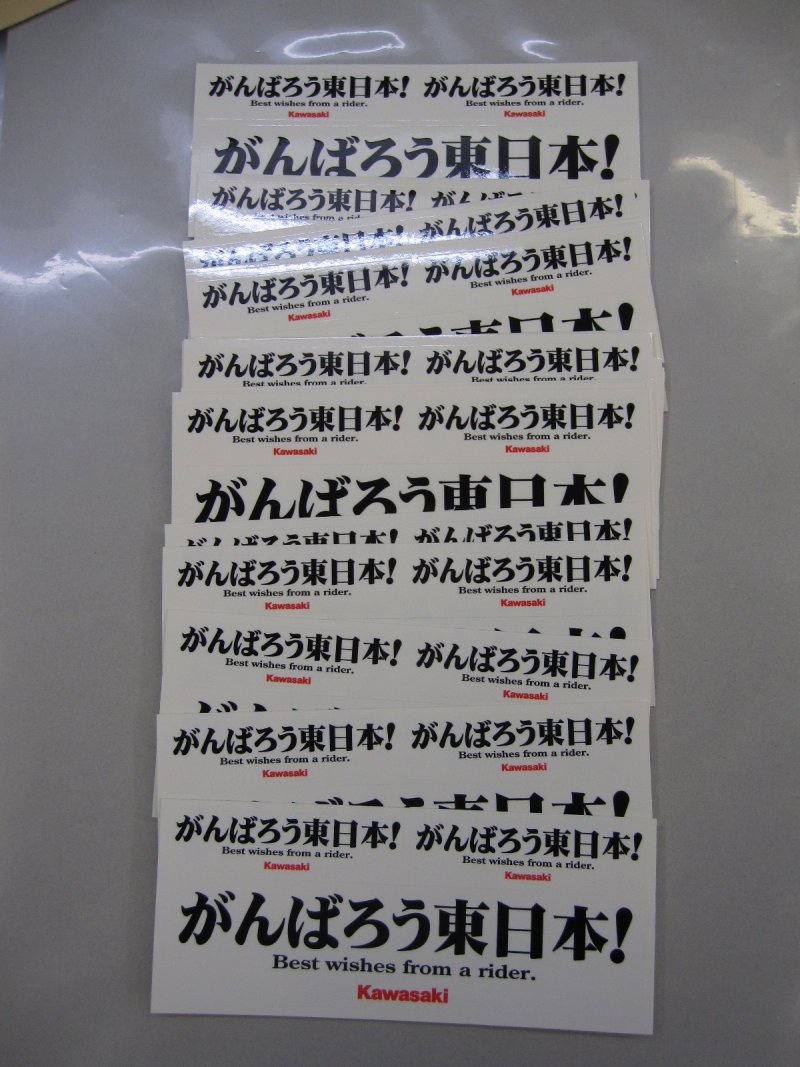 がんばろう東日本! がんばろう東日本!
Best wishes from a rider. Best wishes from a rider.
Kawasaki Kawasaki
がんばろう東日本!
がんばろう東日本! がんばろう
がんばろう東日本! がんばろう東日本!
がんばろう東日本! がんばろう東日本!
Best wishes from a rider. Best wishes from a rider.
Kawasaki Kawasaki
ばろう東日本!
がんばろう東日本! がんばろう東日本!
Best wishes from a rider. Best wishes from a rider.
がんばろう東日本! がんばろう東日本!
Best wishes from a rider. Best wishes from a rider.
Kawasaki Kawasaki
がんばろう東日本!
がんばろう東日本! がんばろう東日本!
がんばろう東日本! がんばろう東日本!
Best wishes from a rider. Best wishes from a rider.
Kawasaki Kawasaki
がんばろう東日本! がんばろう東日本!
Best wishes from a rider. Best wishes from a rider.
Kawasaki Kawasaki
がんばろう東日本! がんばろう東日本!
Best wishes from a rider. Best wishes from a rider.
Kawasaki Kawasaki
がんばろう東日本!
がんばろう東日本! がんばろう東日本!
Best wishes from a rider. Best wishes from a rider.
Kawasaki Kawasaki
がんばろう東日本!
Best wishes from a rider.
Kawasaki